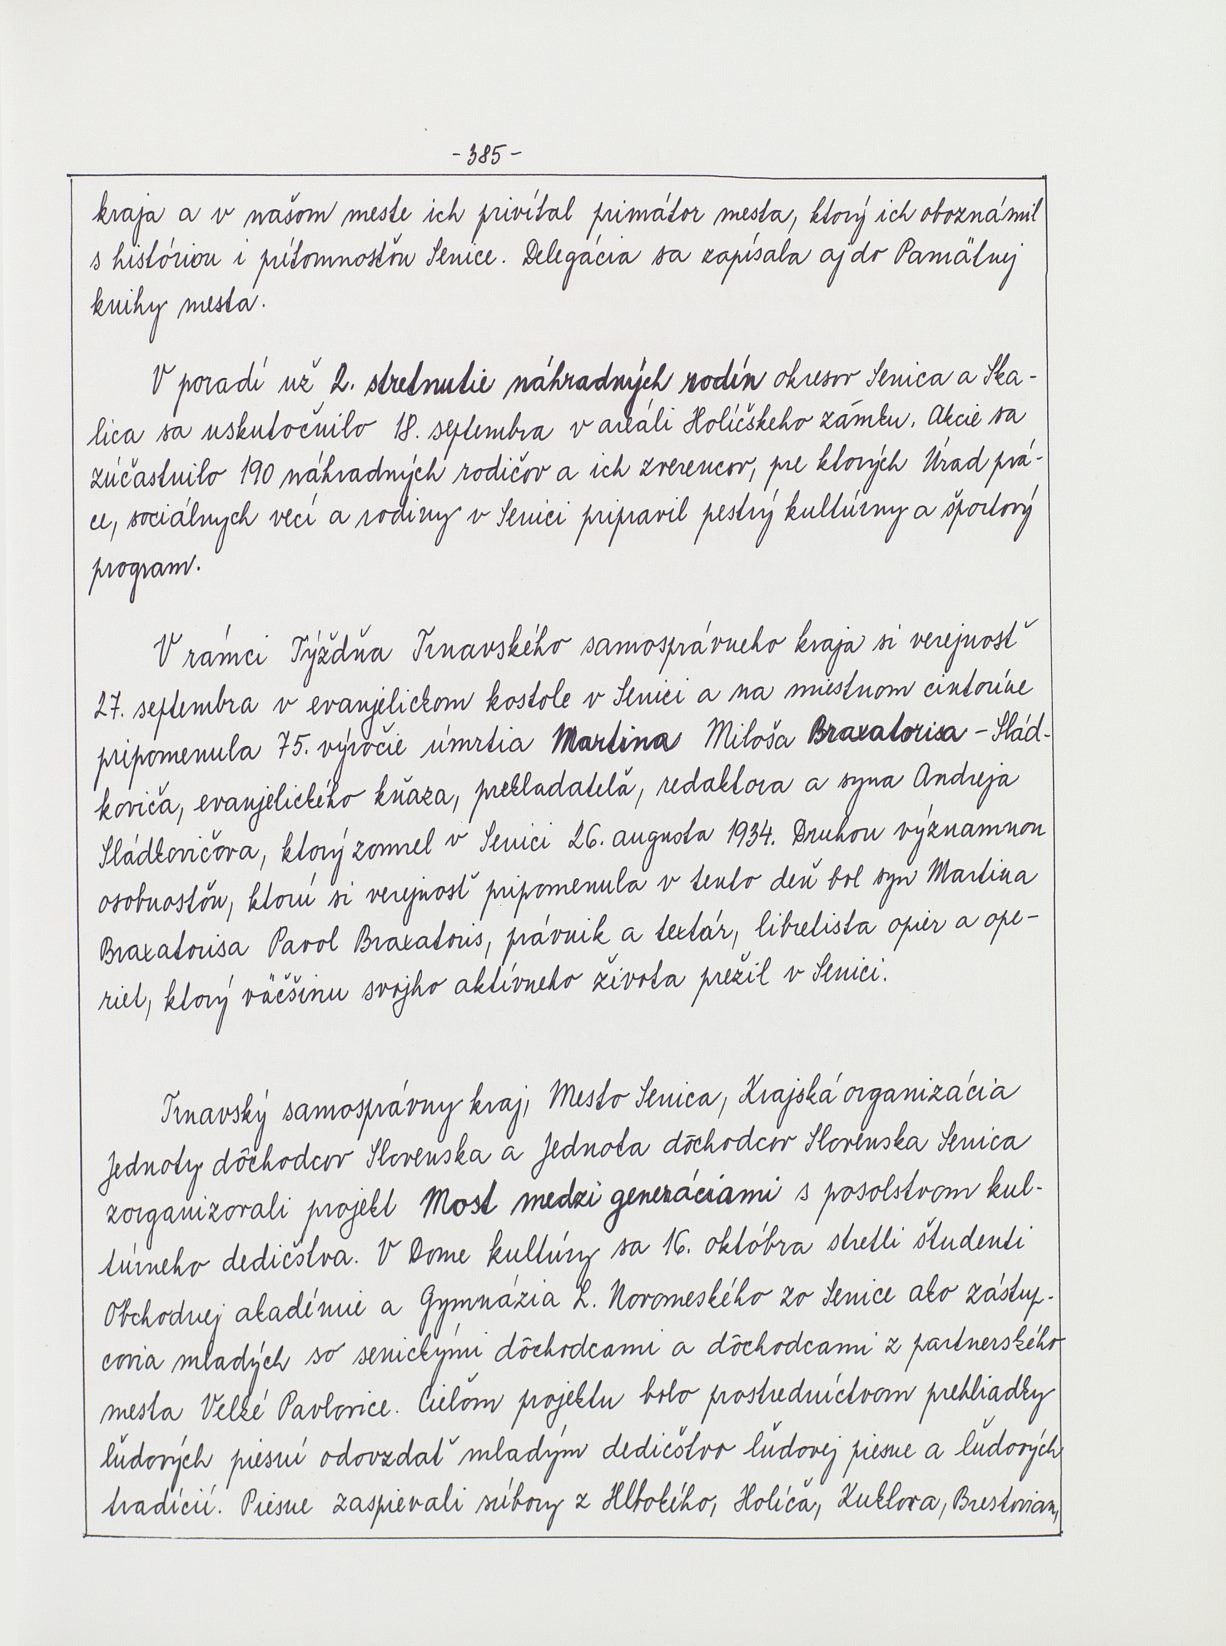 -385-
kraja a v našom meste ich privítal primátor mesta, ktorý ich oboznámil
s históriou i prítomnosťou Senice. Delegácia sa zapísala aj do Pamätnej
knihy mesta.
V poradí už 2. stretnutie náhradných rodín okresov Senica a Ska-
lica sa uskutočnilo 18. septembra v areáli Holíčskeho zámku. Akcie sa
zúčastnilo 190 náhradných rodičov a ich zverencov, pre ktorých Úrad prá-
ce, sociálnych vecí a rodiny v Senici pripravil pestrý kultúrny a športový
program.
V rámci Týždňa Trnavského samosprávneho kraja si verejnosť
27. septembra v evanjelickom kostole v Senici a na miestnom cintoríne
pripomenula 75. výročie úmrtia Martina Miloša Braxatorisa - Slád-
koviča, evanjelického kňaza, prekladateľa, redaktora a syna Andreja
Sládkovičova, ktorý zomrel v Senici 26. augusta 1934. Druhou významnou
osobnosťou, ktorú si verejnosť pripomenula v tento deň bol syn Martina
Braxatorisa Pavol Braxatoris, právnik a textár, libretista opier a ope-
riet, ktorý väčšinu svojho aktívneho života prežil v Senici.
Trnavský samosprávny kraj, Mesto Senica, Krajská organizácia
Jednoty dôchodcov Slovenska a Jednota dôchodcov Slovenska Senica
zorganizovali projekt Most medzi generáciami s posolstvom kul-
túrneho dedičstva. V Dome kultúry sa 16. októbra stretli študenti
Obchodnej akadémie a Gymnázia L. Novomeského zo Senice ako zástup-
covia mladých so senickými dôchodcami a dôchodcami z partnerského
mesta Velké Pavlovice. Cieľom projektu bolo prostredníctvom prehliadky
ľudových piesní odovzdať mladým dedičstvo ľudovej piesne a ľudových
tradícií. Piesne zaspievali súbory z Hlbokého, Holíča, Kuklova, Brestovian,